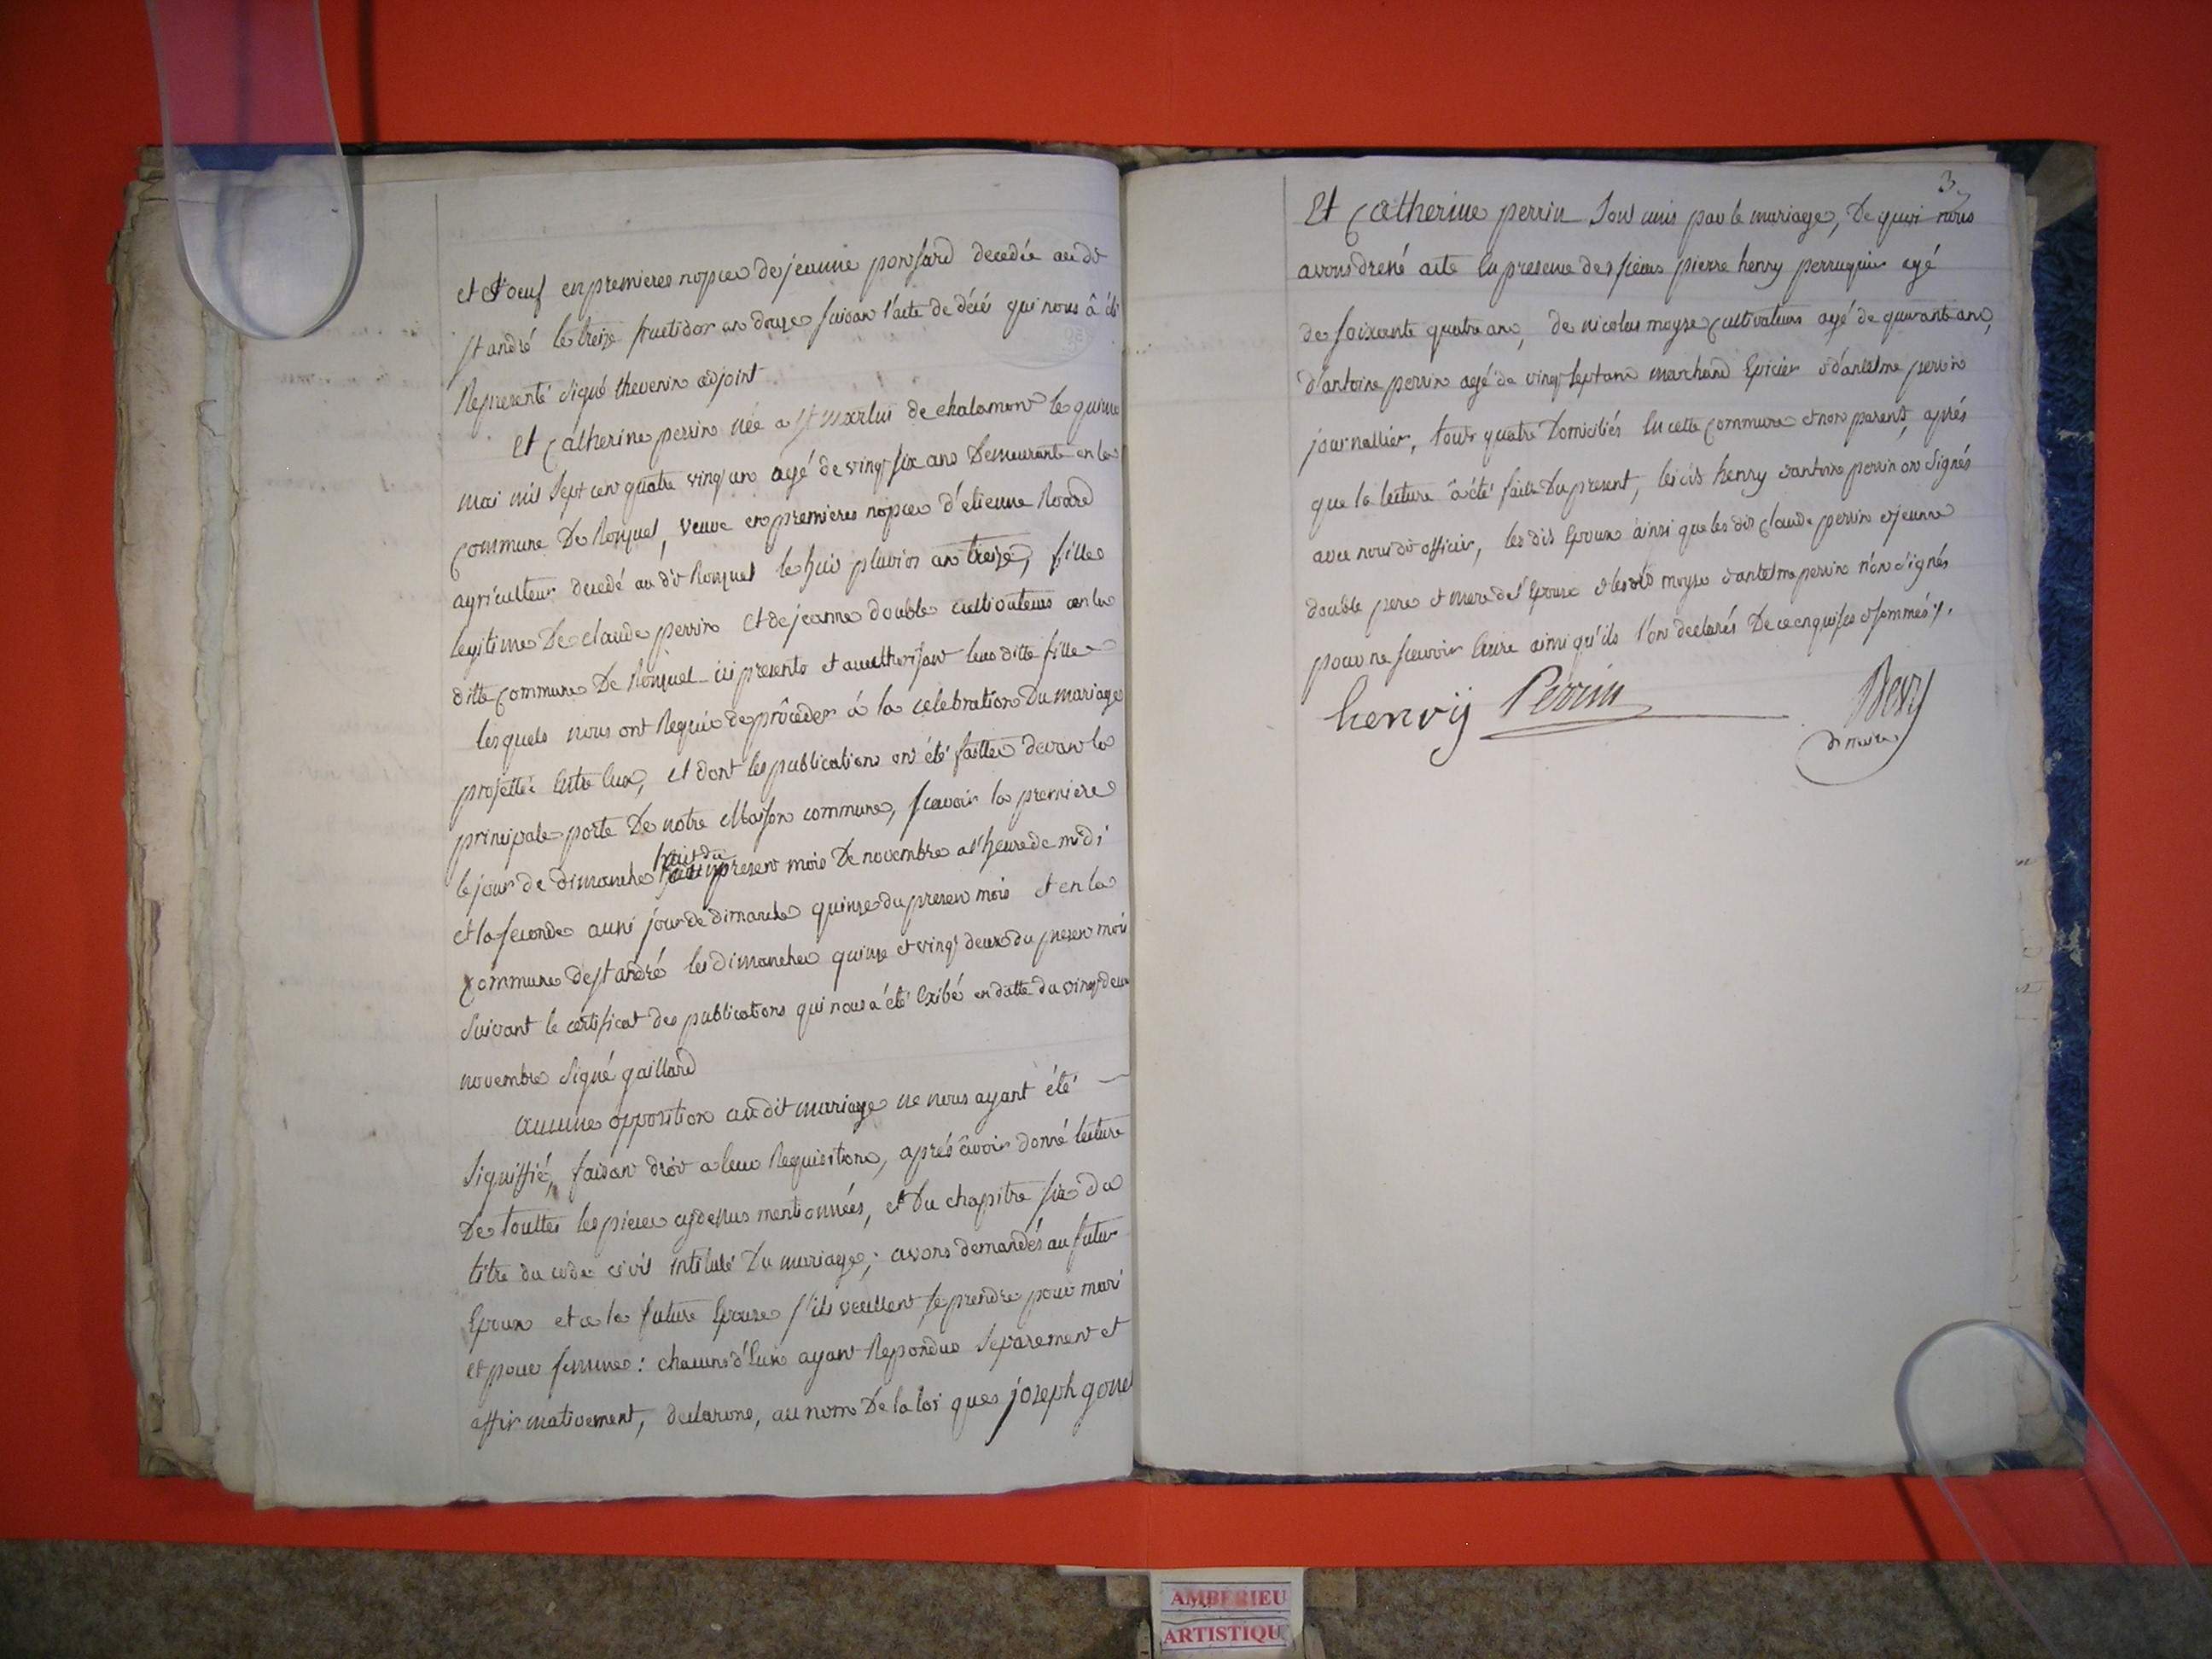 et veuf en premieres nopces de jeanne ponsard decedée au dit
st andré le treize fructidor an douze suivan l'acte de décès qui nous â été
Representé signé thevenin adjoint
et catherine perrin née a st martin de chalamont le quinze
mai mil sept cent quatre vingt un agé de vingt six ans Demeurante en la
commune De Ronzuel, veuve en premieres nopces d'etienne Roard
agriculteur decedé au dit Ronzuel le huit pluvios an treize, fille
legitime De claude perrin et de jeanne double cultivateurs en la
ditte commune De Ronzuel ici presents et autherisant leur ditte fille
lesquels nous ont Requis de procéder à la celebration Du mariage
projetté entre eux, et dont les publications ont été faittes devant la
principale porte De notre Maison commune, scavoir la premiere
le jour de dimanche huit du present mois De novembre a l'heure de midi
et la seconde aussi jour de dimanche quinze du present mois et en la
commune de st andré les dimanches quinze et vingt deux du present mois
suivant le certificat des publications qui nous a été exibé en datte du vingt deux
novembre signé gaillard
aucune opposition au dit mariage ne nous ayant été
signiffié, faisant droit a leur Requisition, aprés âvoir donné lecture
De touttes les pieces cydessus mentionnées, et Du chapitre six du
titre du code civil intitulé Du mariage; avons demandés au futur
Epoux et a la future Epouse s'ils veullent se prendre pour mari
et pour femme: chacuns d'eux ayant Repondus separement et
affirmativement, declarons, au nom De la loi que joseph gonet
3
Et Catherine perrin sont unis par le mariage, De quoi nous
avons dressé acte en presence des sieurs pierre henry perruquier agé
de soixante quatre ans, de nicolas moyse cultivateurs agé de quarante ans,
d'antoine perrin agé de vingt sept ans marchand Epicier et d'antelme perrin
journallier, tous quatre Domiciliés en cette commune et non parents, aprés
que la lecture â été faitte Du present, lesdits henry et antoine perrin ont signés
avec nous dit officier, les dits Epoux ainsi que les dits claude perrin et jeanne
double pere et mere de l'Epouse et lesdits moyse et antelme perrin n'on signés
pour ne scavoir Ecrire ainsi qu'ils l'on declarés De ce enquises et sommés.
henry Perrin
maire
AMBERIEU
ARTISTIQU